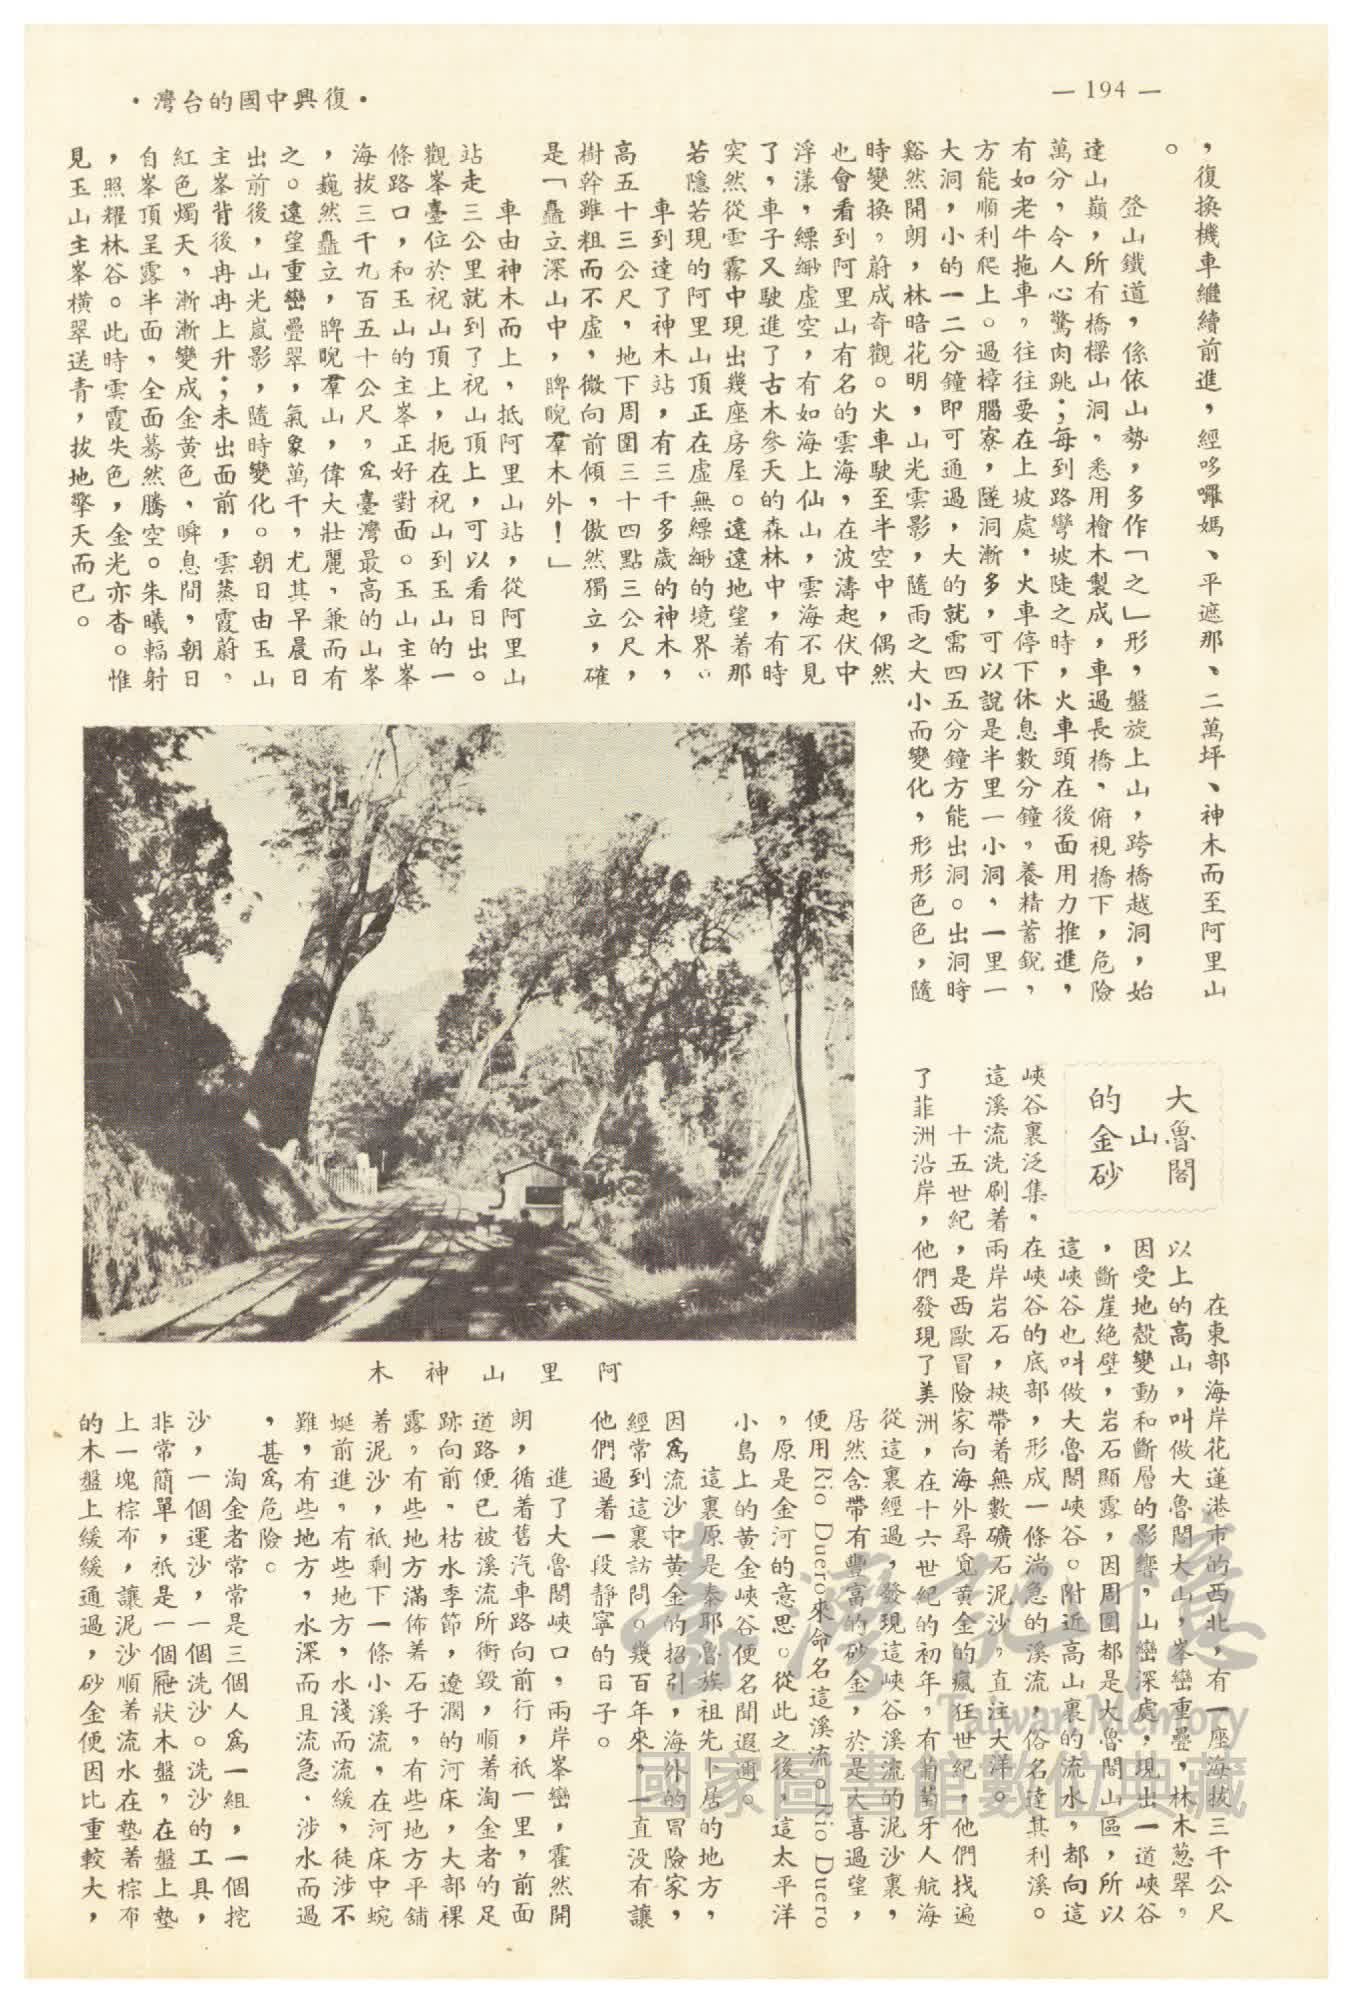 — 194 —
•復興中國的台灣•
，復換機車繼續前進，經哆囉嫣、平遮那、二萬坪、神木而至阿里山
。
登山鐵道，係依山勢，多作「之」形，盤旋上山，跨橋越洞，始
達山巔，所有橋樑山洞，悉用檜木製成，車過長橋、俯視橋下，危險
萬分，令人心驚肉跳；每到路彎坡陡之時，火車頭在後面用力推進，
有如老牛拖車，往往要在上坡處，火車停下休息數分鐘，養精蓄銳，
方能順利爬上。過樟腦寮，隧洞漸多，可以說是半里一小洞，一里一
大洞，小的一二分鐘即可通過，大的就需四五分鐘方能出洞。出洞時
谿然開朗，林暗花明，山光雲影，隨雨之大小而變化，形形色色，隨
時變換，蔚成奇觀。火車駛至半空中，偶然
也會看到阿里山有名的雲海，在波濤起伏中
浮漾，縹緲虛空，有如海上仙山，雲海不見
了，車子又駛進了古木參天的森林中，有時
突然從雲霧中現出幾座房屋。遠遠地望着那
若隱若現的阿里山頂正在虛無縹緲的境界：
車到達了神木站，有三千多歲的神木，
高五十三公尺，地下周圍三十四點三公尺，
樹幹雖粗而不虛，微向前傾，傲然獨立，確
是「矗立深山中，睥睨羣木外！」
車由神木而上，抵阿里山站，從阿里山
站走三公里就到了祝山頂上，可以看日出。
觀峯臺位於祝山頂上，扼在祝山到玉山的一
條路口，和玉山的主峯正好對面。玉山主峯
海拔三千九百五十公尺，爲臺灣最高的山峯
，巍然矗立，睥睨羣山，偉大壯麗，兼而有
之。遠望重巒疊翠，氣象萬千，尤其早晨日
出前後，山光嵐影，隨時變化。朝日由玉山
主峯背後冉冉上升；未出面前，雲蒸霞蔚，
紅色燭天，漸漸變成金黃色，瞬息間，朝日
自峯頂呈露半面，全面驀然騰空。朱曦輻射
，照耀林谷。此時雲霞失色，金光亦杳。惟
見玉山主峯橫翠送青，拔地擎天而已。
阿里山神木
大魯閣
山
的金砂
在東部海岸花蓮港市的西北，有一座海拔三千公尺
以上的高山，叫做大魯閣大山，峯巒重疊，林木葱翠，
因受地殼變動和斷層的影響，山巒深處，現出一道峽谷
，斷崖絕壁，岩石顯露，因周圍都是大魯閣山區，所以
這峽谷也叫做大魯閣峽谷。附近高山裏的流水，都向這
峽谷裏泛集，在峽谷的底部，形成一條湍急的溪流，俗名達其利溪。
這溪流洗刷着兩岸岩石，挾帶着無數礦石泥沙，直注大洋。
十五世紀，是西歐冒險家向海外尋覓黃金的瘋狂世紀，他們找遍
了菲洲沿岸，他們發現了美洲，在十六世紀的初年，有葡萄牙人航海
從這裏經過，發現這峽谷溪流的泥沙裏，
居然含帶有豐富的砂金，於是大喜過望，
便用Rio Duero來命名這溪流。Rio Duero
，原是金河的意思。從此之後，這太平洋
小島上的黃金峽谷便名聞遐邇。
這裏原是泰耶魯族祖先卜居的地方，
因爲流沙中黃金的招引，海外的冒險家，
經常到這裏訪問。幾百年來，一直沒有讓
他們過着一段靜寧的日子。
進了大魯閣峽口，兩岸峯巒，霍然開
朗，循着舊汽車路向前行，祇一里，前面
道路便已被溪流所衝毀，順着淘金者的足
跡向前，枯水季節，遼濶的河床，大部裸
露。有些地方滿佈着石子，有些地方平舖
着泥沙，祇剩下一條小溪流，在河床中蜿
蜒前進。有些地方，水淺而流緩，徒涉不
難，有些地方，水深而且流急，涉水而過
，甚爲危險。
淘金者常常是三個人爲一組，一個挖
沙，一個運沙，一個洗沙。洗沙的工具，
非常簡單，祇是一個屜狀木盤，在盤上墊
上一塊棕布，讓泥沙順着流水在墊着棕布
的木盤上緩緩通過，砂金便因比重較大，
臺灣記憶
Taiwan Memory
國家圖書館數位典藏